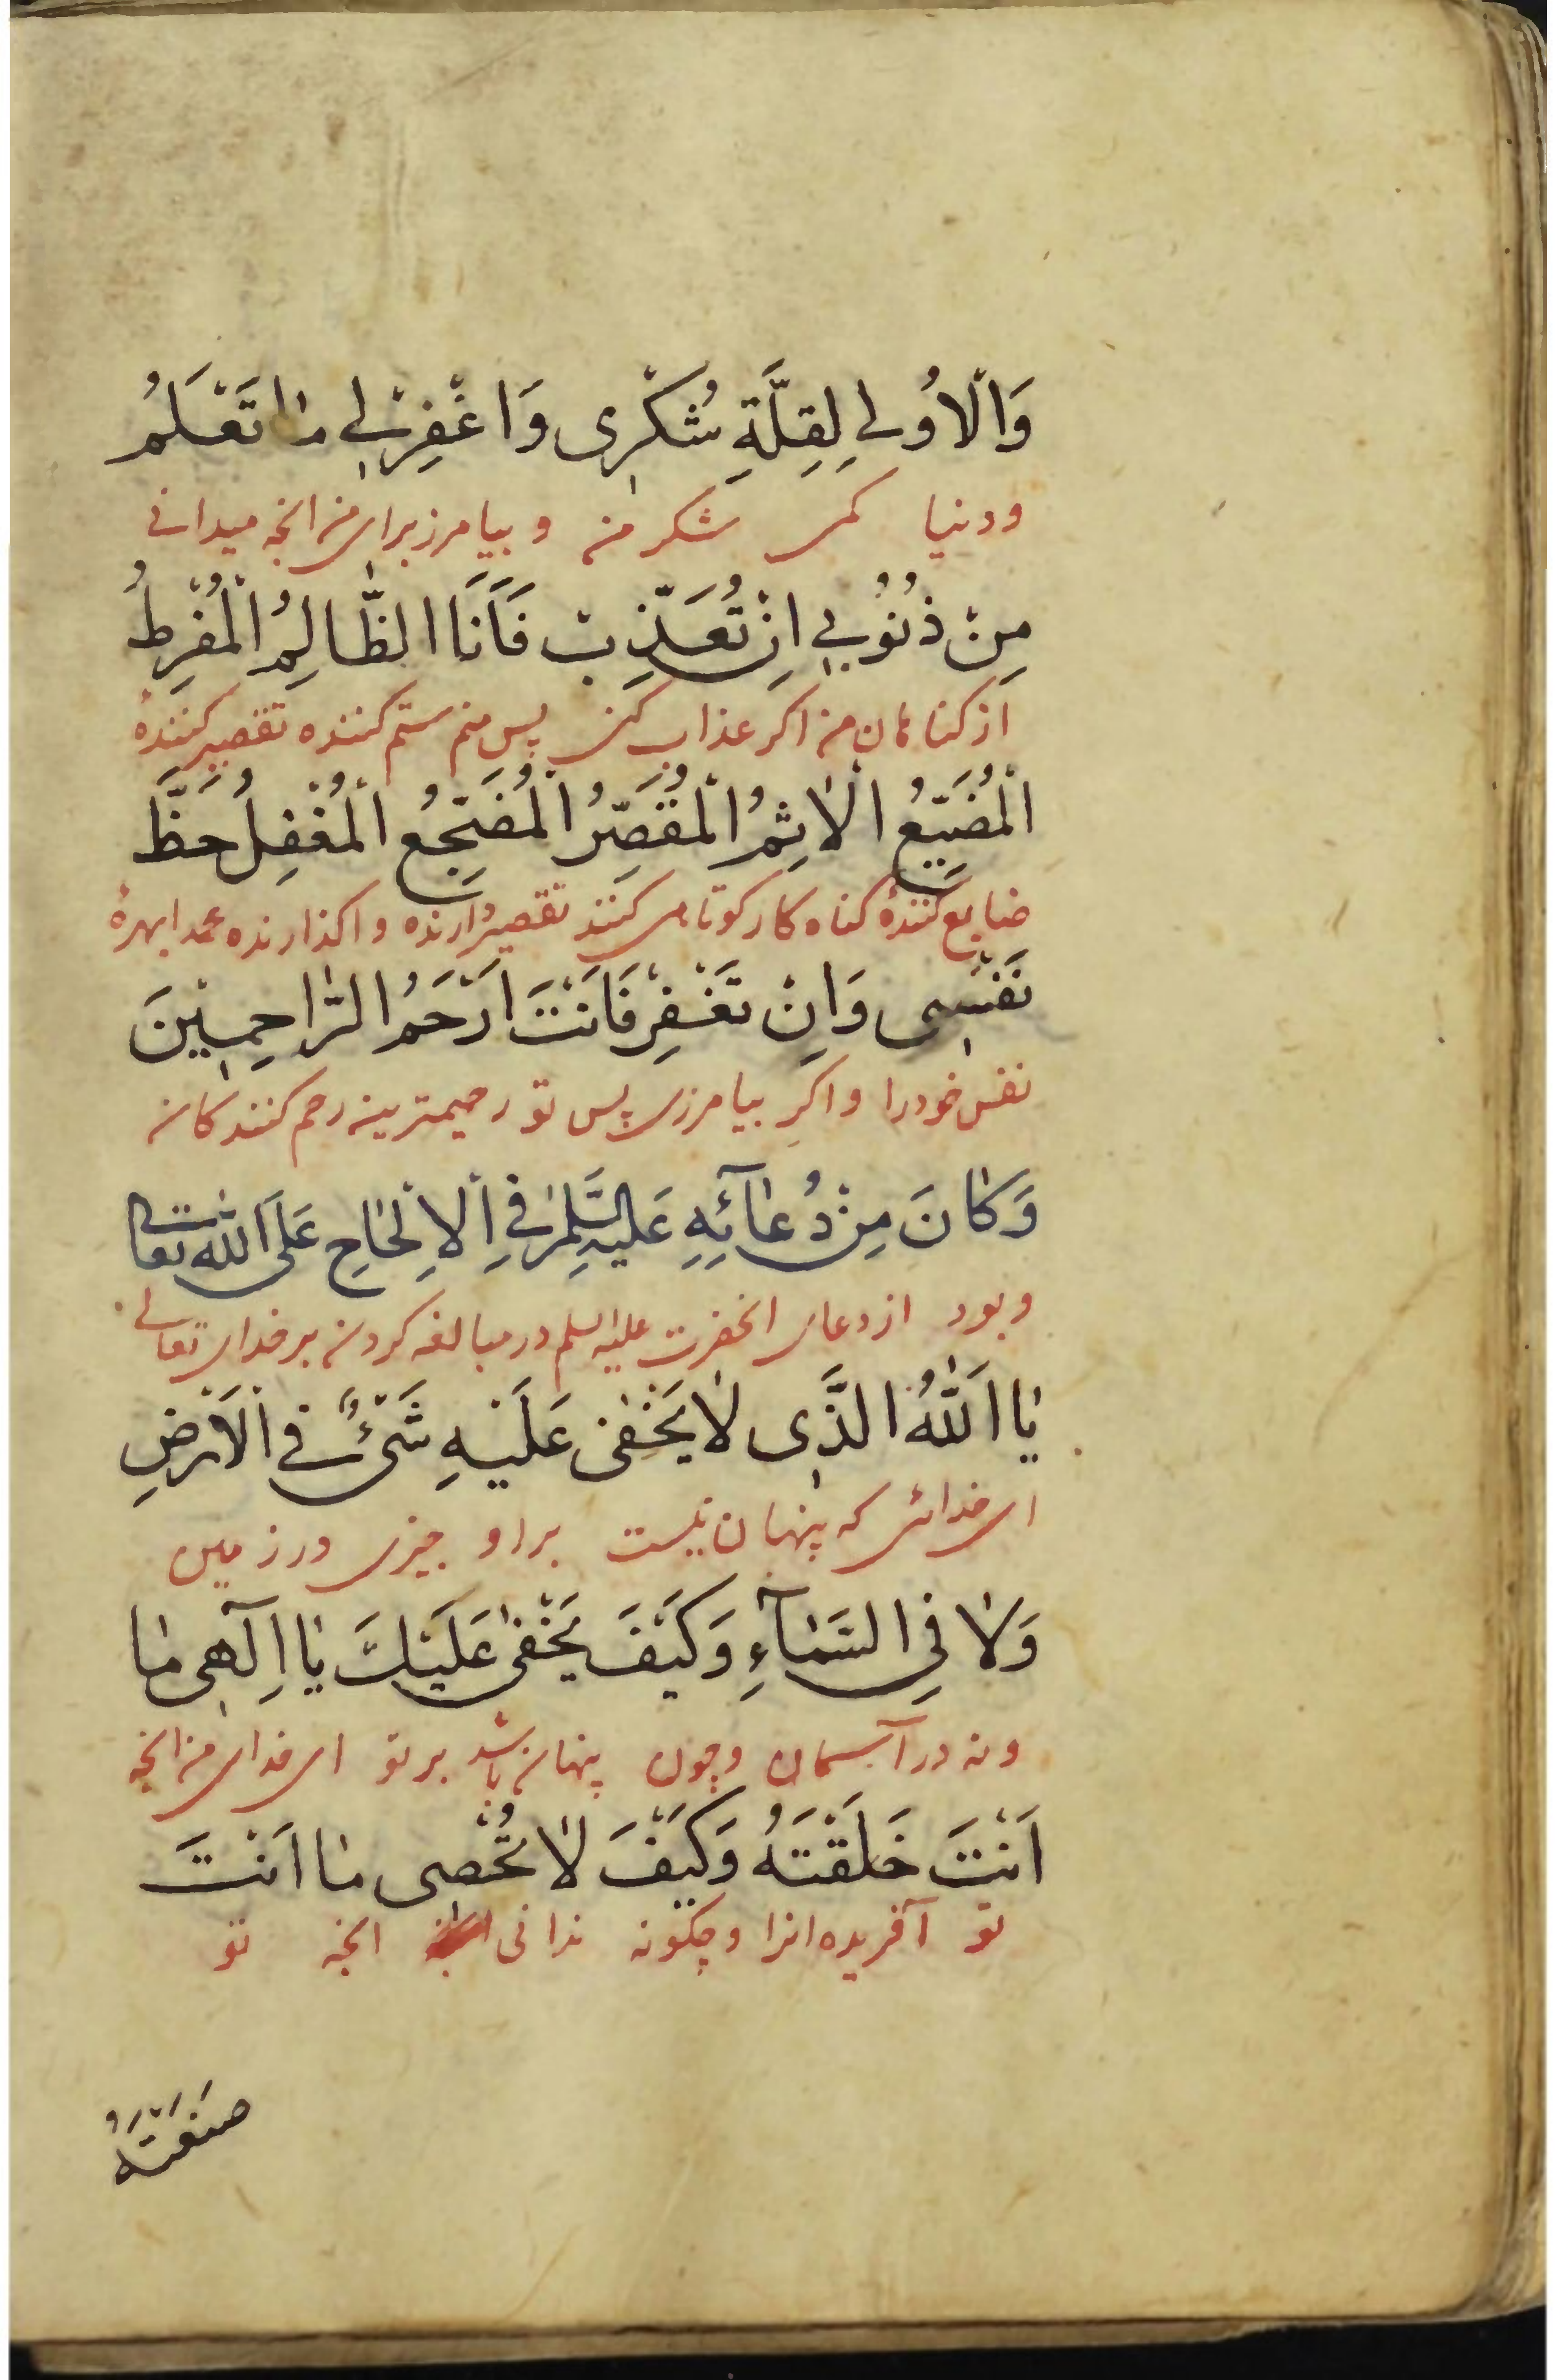 وَالْاُولٰى لِقِلَّةِ شُكْرٖى وَاغْفِرْلٖى مٰا تَعْلَمُ
ودنیا کمی شکر من و بیامرز برای من انچه میدانی
مِنْ ذُنُوبٖى اِنْ تُعَذِّبْ فَاَنَا الظّٰالِمُ الْمُفْرِطُ
از کناهان من اکر عذاب کنی پس منم ستم کننده تقصیر کنندهٔ
الْمُضَيِّعُ الْاٰثِمُ الْمُقَصِّرُ الْمُضَجِّعُ الْمُغْفِلُ حَظَّ
ضایع کنندهٔ کناه کار کوتاهی کنند تقصیر ارنده واکذارنده عمدا بهرهٔ
نَفْسٖى وَاِنْ تَغْفِرْ فَاَنْتَ اَرْحَمُ الرّٰاحِمٖينَ
نفس خودرا واکر بیامرزی پس تو رحیمترین رحم کنندکان
وَكٰانَ مِنْ دُعٰآئِهِ عَلَيْهِ السَّلٰمُ فِي الْاِلْحٰاحِ عَلَى اللّٰهِ تعالى
وبود از دعای انحضرت علیه السلم در مبالغه کردن بر خدای تعالی
يٰا اَللّٰهُ الَّذٖى لٰا يَخْفٰى عَلَيْهِ شَىْءٌ فِي الْاَرْضِ
ای خدائی که پنهان نیست براو چیزی در زمین
وَلٰا فِي السَّمٰآءِ وَكَيْفَ يَخْفٰى عَلَيْكَ يٰا اِلٰهٖى مٰا
ونه در آسمان وچون پنهان باشد بر تو ای خدای من انچه
اَنْتَ خَلَقْتَهُ وَكَيْفَ لٰا تُحْصٖى مٰا اَنْتَ
تو آفریده انرا وچکونه ندانی انچه تو
صَنَعْتَهُ